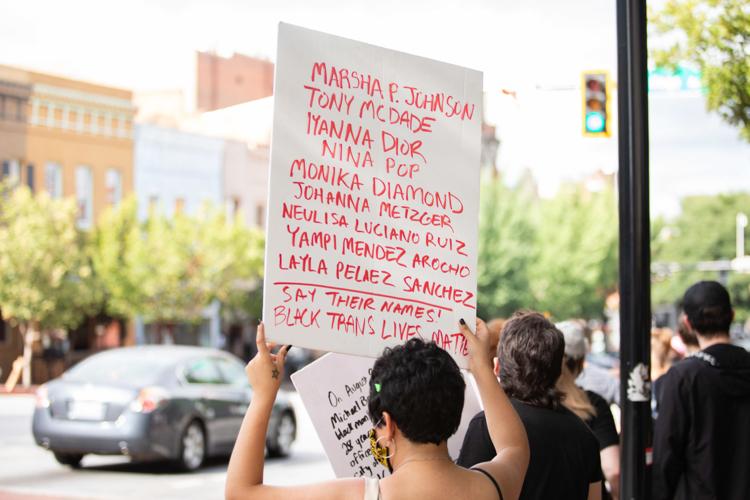 MARSHA P. JOHNSON
TONY MCDADE
IYANNA DIOR
NINA POP
MONIKA DIAMOND
JOHANNA METZGER
NEULISA LUCIANO RUIZ
YAMPI MENDEZ AROCHO
LAYLA PELAEZ SANCHEZ
"SAY THEIR NAMES!"
BLACK TRANS LIVES MATTE
On August
Michael B
black man
office